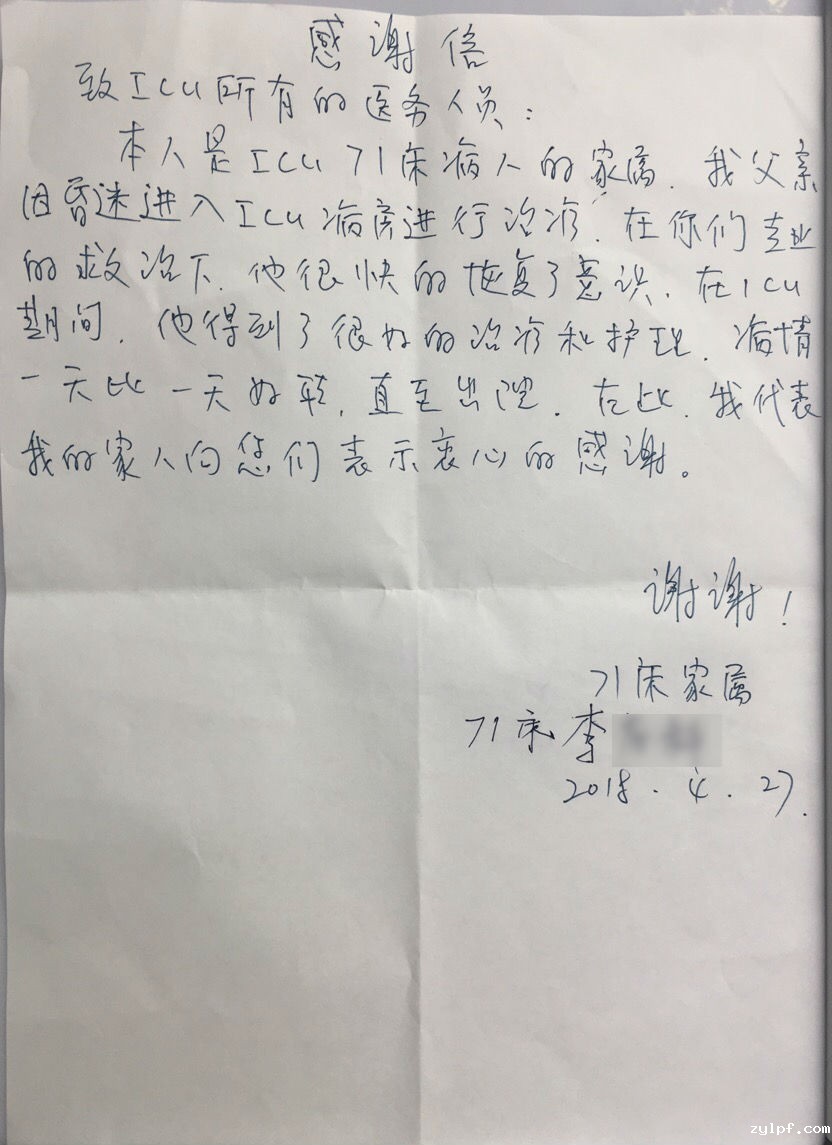 感谢信
致ICU所有的医务人员：
本人是ICU 71床病人的家属.我父亲
因昏迷进入ICU病房进行治疗.在你们专业
的救治下.他很快的恢复了意识.在ICU
期间.他得到了很好的治疗和护理.病情
一天比一天好转,直至出院.在此.我代表
我的家人向您们表示衷心的感谢。
谢谢！
71床家属
71床李
2018.4.27.
zylpf.com